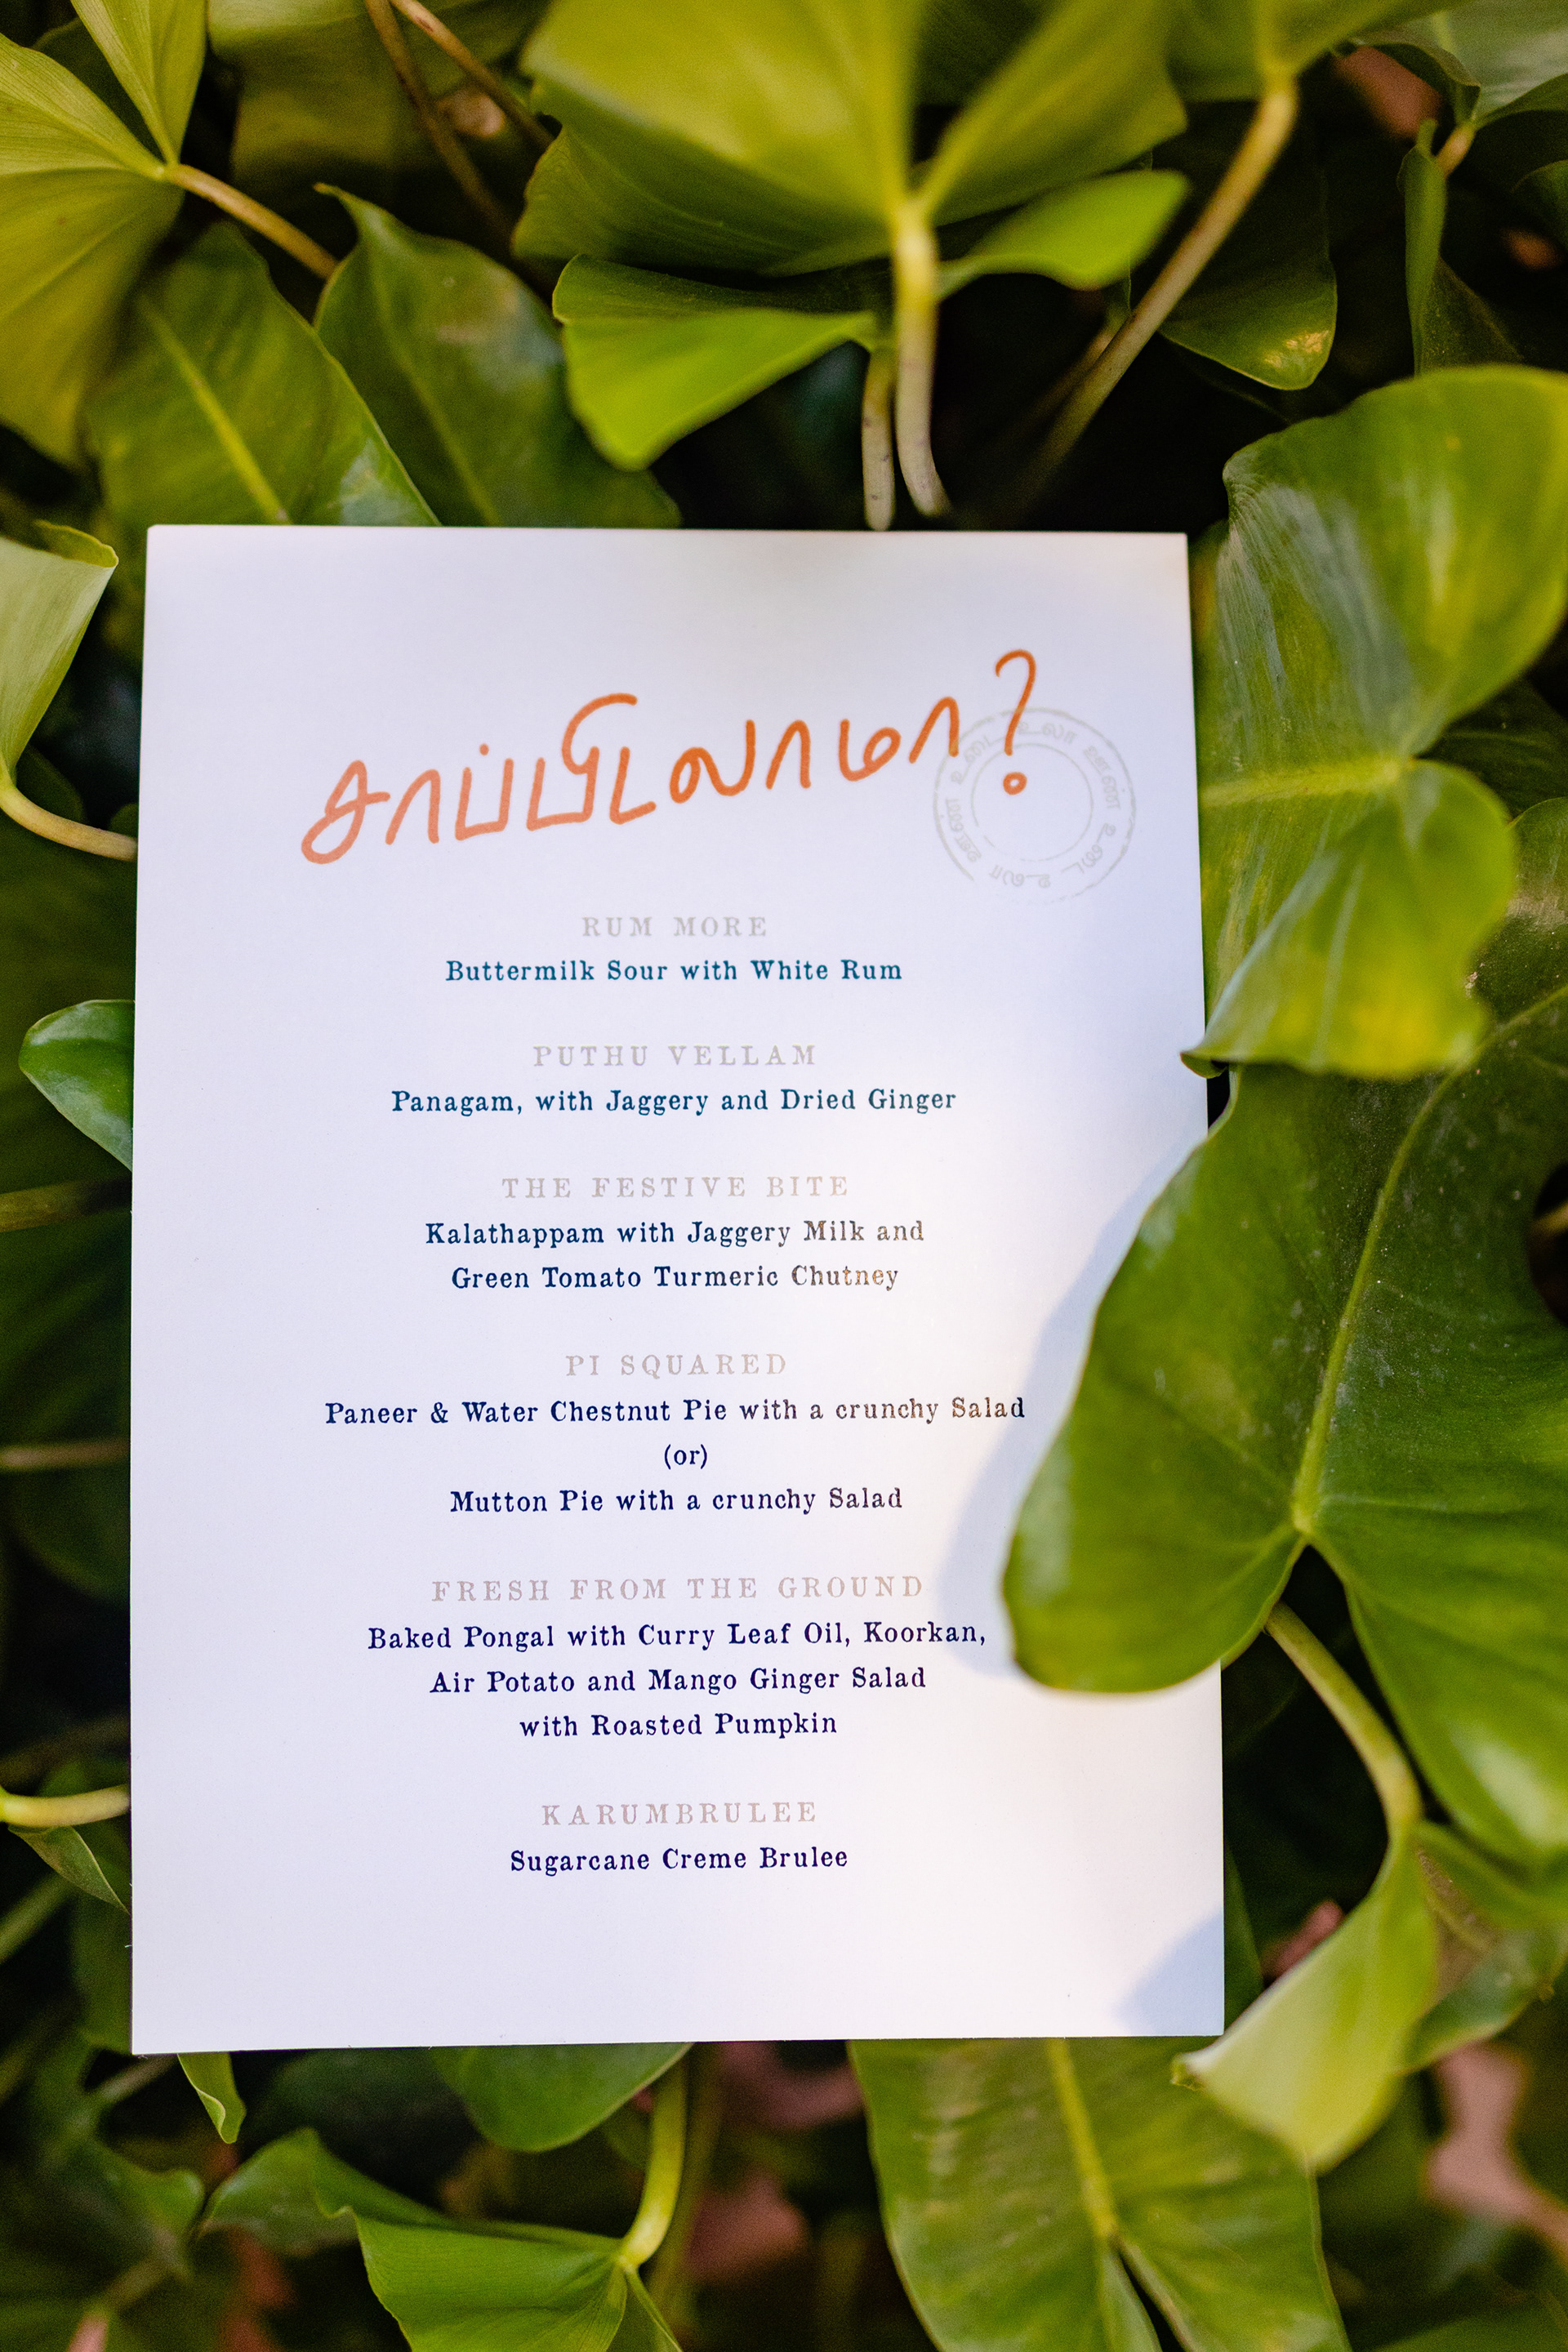 சாப்பிடலாமா?
உடை உலா ஊண் உடை உலா ஊண்
RUM MORE
Buttermilk Sour with White Rum
PUTHU VELLAM
Panagam, with Jaggery and Dried Ginger
THE FESTIVE BITE
Kalathappam with Jaggery Milk and
Green Tomato Turmeric Chutney
PI SQUARED
Paneer & Water Chestnut Pie with a crunchy Salad
(or)
Mutton Pie with a crunchy Salad
FRESH FROM THE GROUND
Baked Pongal with Curry Leaf Oil, Koorkan,
Air Potato and Mango Ginger Salad
with Roasted Pumpkin
KARUMBRULEE
Sugarcane Creme Brulee